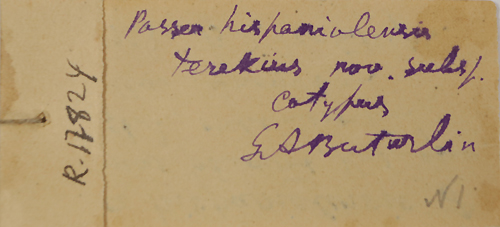 Passer hispaniolensis
terekius nov. subsp.
cotypus
S A Buturlin
R-17824
N1